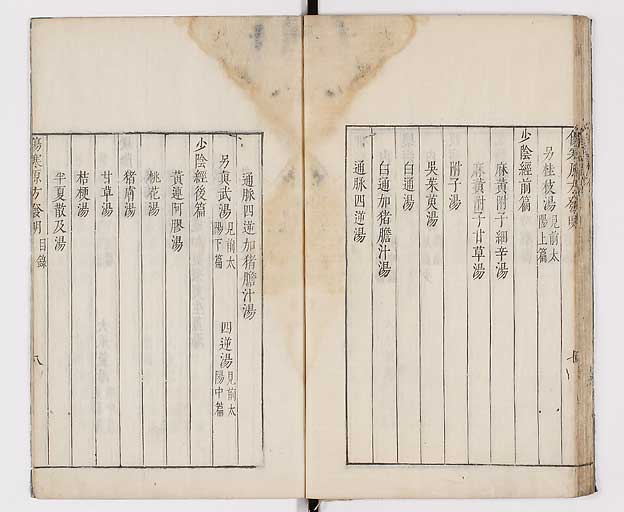 另桂枝湯見前太陽上篇
少陰經前篇
麻黃附子細辛湯
麻黃附子甘草湯
附子湯
吳茱萸湯
白通湯
白通加猪膽汁湯
通脈四逆湯
通脈四逆加猪膽汁湯
另真武湯見前太陽下篇 四逆湯見前太陽中篇
少陰經後篇
黃連阿膠湯
桃花湯
猪膚湯
甘草湯
桔梗湯
半夏散及湯
傷寒原方發明目錄 八